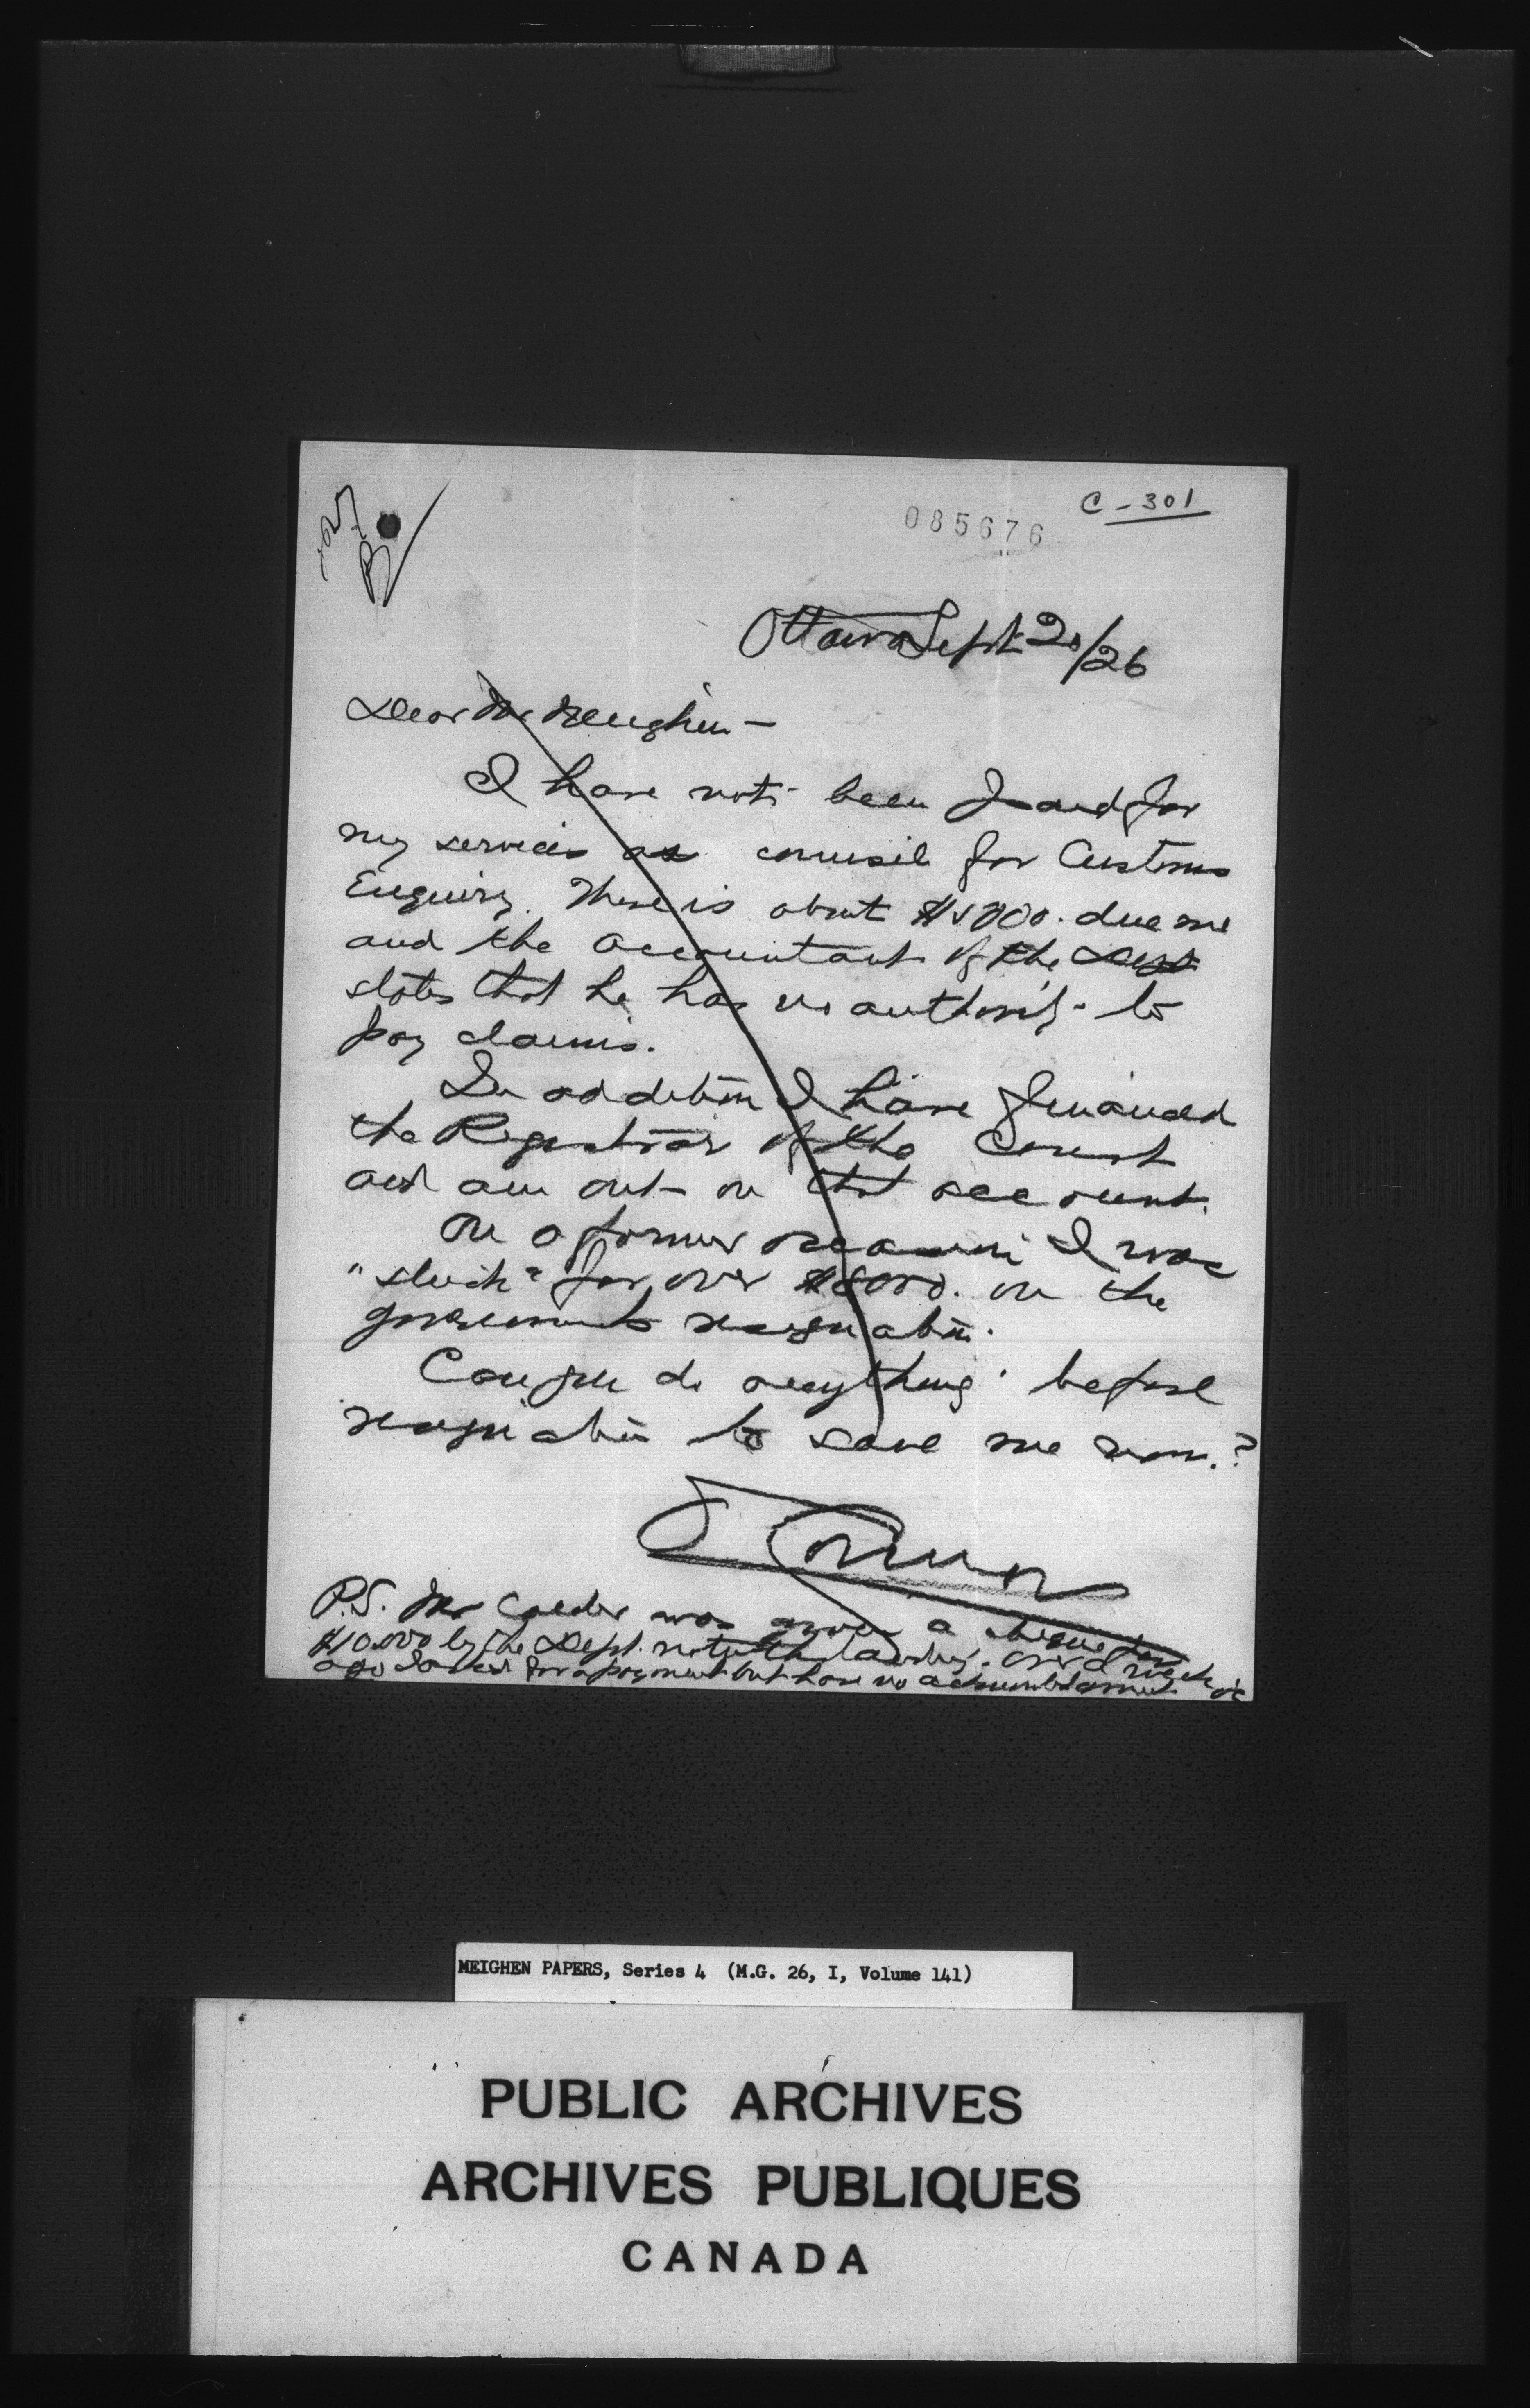 C-301
085676
Ottawa Sept 20/26
Dear Mr Meighen —
I have not been paid for
my services as counsil for Customs
Enquiry. There is about $5000. due me
and the accountant of the Dept
states that he has no authority to
pay claims.
In addition I have financed
the Registrar of the Court
and am out on that account.
On a former occasion I was
"stuck" for over $8000. on the
governments resignation.
Can you do anything before
resignation to save me now?
P.S. Mr Calder was given a cheque for
$10,000 by the Dept. notwithstanding. Over a week
ago I asked for a payment but have no acknowledgment
MEIGHEN PAPERS, Series 4 (M.G. 26, I, Volume 141)
PUBLIC ARCHIVES
ARCHIVES PUBLIQUES
CANADA